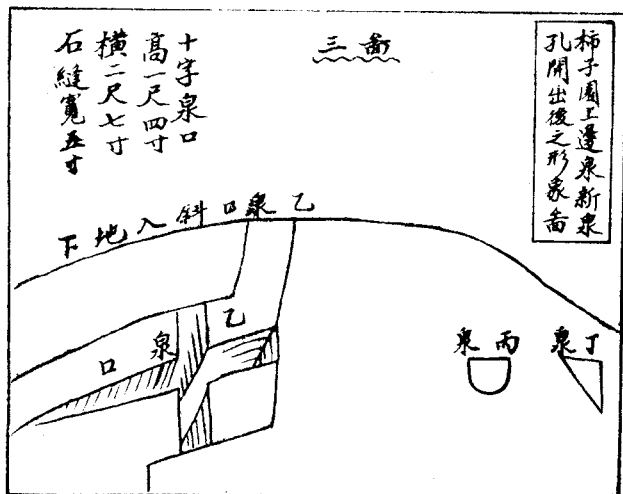 柿子園上邊泉新泉
孔開出後之形象啚
三啚
十字泉口
高一尺四寸
橫二尺七寸
石縫寬五寸
乙泉口斜入地下
乙
泉口
丙泉
丁泉